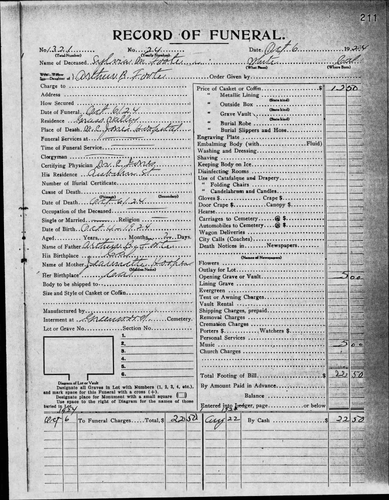 211
RECORD OF FUNERAL.
No. 321 No. 24 Date, Oct 6 1924
(Total Number) (Yearly Number)
Name of Deceased, M. Foote White Cal
(What Race) (Where Born)
Arthur B. Foote Order Given by
Charge to
Address
How Secured
Date of Funeral, Oct 6/24
Residence, Grass Valley
Place of Death, Jones Hospital
Funeral Services at
Time of Funeral Service,
Clergyman
Certifying Physician, Dr C Jones
His Residence, Auburn St
Number of Burial Certificate,
Cause of Death,
Date of Death, Oct 6/24
Occupation of the Deceased
Single or Married, Religion
Date of Birth, Oct 4 1924
Aged, Years, Months, 2 Days.
Name of Father,
His Birthplace,
Name of Mother,
(Maiden Name)
Her Birthplace, Cal
Body to be shipped to
Size and Style of Casket or Coffin,
Manufactured by
Interment at Greenwood Cemetery.
Lot or Grave No. Section No.
1
2
3
4
5
6
Diagram of Lot or Vault
Designate all Graves in Lot with Numbers (1, 2, 3, 4, etc.), and mark space for this Funeral with a cross (+).
Designate place for Monument with a small square
Use space to the right of Diagram for the names of those buried in Lot.
Price of Casket or Coffin, $ 12 50
" Metallic Lining
(State kind)
" Outside Box
(State kind)
" Grave Vault
(State kind)
" Burial Robe
(State kind)
" Burial Slippers and Hose
Engraving Plate
Embalming Body (with Fluid)
Washing and Dressing,
Shaving
Keeping Body on Ice
Disinfecting Rooms
Use of Catafalque and Drapery
" Folding Chairs
" Candelabrum and Candles,
Gloves $ Crape $
Door Crape, $ Canopy $
Hearse
Carriages to Cemetery @ $
Automobiles to Cemetery @ $
Wagon Deliveries
City Calls (Coaches)
Death Notices in Newspapers
(Names of Newspapers)
Flowers
Outlay for Lot
Opening Grave or Vault 5 00
Lining Grave
Evergreen
Tent or Awning Charges
Vault Rental
Shipping Charges, prepaid
Removal Charges
Cremation Charges
Porters $ Watchers $
Personal Services
Music 5 00
Church Charges
Total Footing of Bill $ 22 50
By Amount Paid in Advance
Balance
Entered into Ledger, page or below.
1924
Oct 6 To Funeral Charges, Total, $ 22 50 22 By Cash $ 22 50